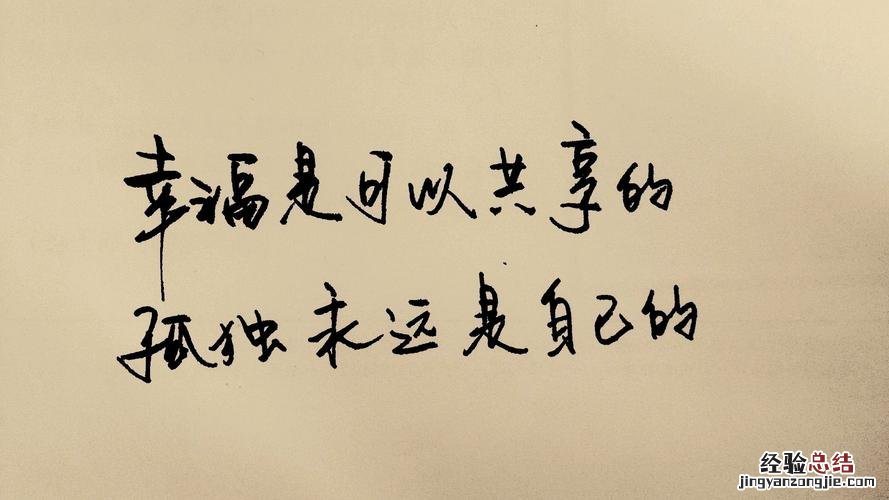 幸福是可以共享的
孤独永远是自己的
经验总结
jingyanzongjie.com